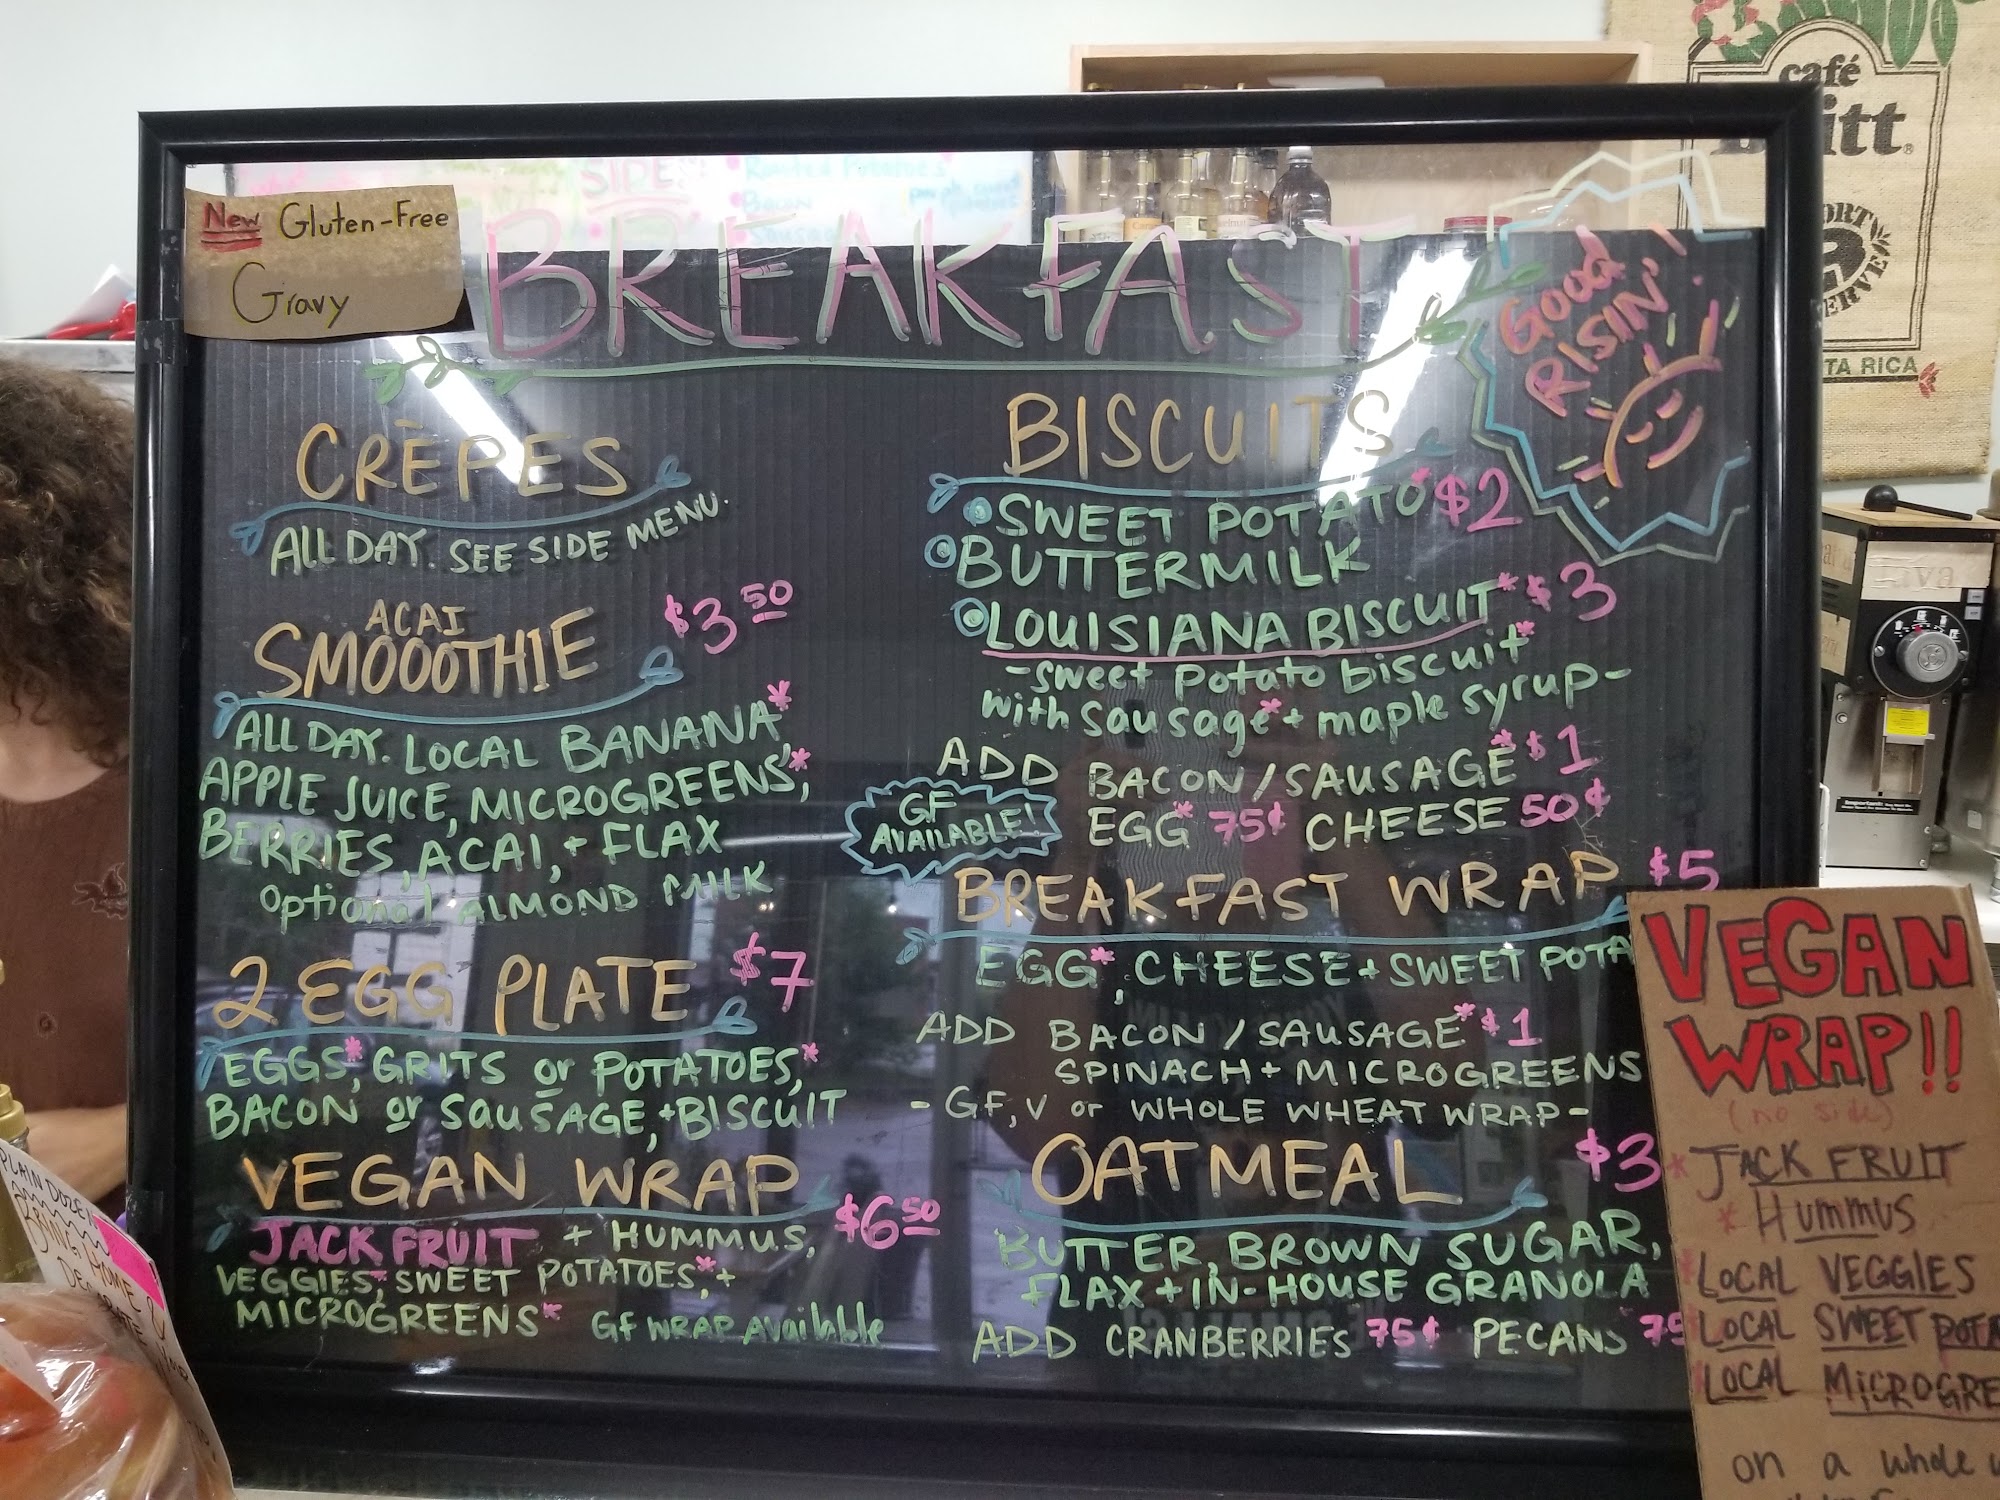 New Gluten-Free
Gravy
SIDES:
Roasted Potatoes
Bacon
Sausage
BREAKFAST
GOOD
RISIN'
CRÊPES
ALL DAY. SEE SIDE MENU.
ACAI
SMOOOTHIE $3 50
ALL DAY. LOCAL BANANA*
APPLE JUICE, MICROGREENS*,
BERRIES, ACAI, + FLAX
optional ALMOND MILK
2 EGG PLATE $7
EGGS*, GRITS or POTATOES*,
BACON or SAUSAGE, + BISCUIT
VEGAN WRAP
$6 50
JACK FRUIT + HUMMUS,
VEGGIES*, SWEET POTATOES* +
MICROGREENS* GF WRAP Available
BISCUITS
SWEET POTATO* $2
BUTTERMILK
LOUISIANA BISCUIT* $3
- sweet potato biscuit*
with sausage* + maple syrup -
ADD BACON / SAUSAGE* $1
EGG* 75¢ CHEESE 50¢
GF
AVAILABLE!
BREAKFAST WRAP $5
EGG*, CHEESE + SWEET POTA
ADD BACON / SAUSAGE* $1
SPINACH + MICROGREENS
- GF, V or WHOLE WHEAT WRAP -
OATMEAL $3
BUTTER, BROWN SUGAR,
FLAX + IN-HOUSE GRANOLA
ADD CRANBERRIES 75¢ PECANS 75
VEGAN
WRAP!!
(no side)
* JACK FRUIT
* HUMMUS
* LOCAL VEGGIES
* LOCAL SWEET POTA
* LOCAL MICROGRE
on a whole w
café
itt®
ORT
ERVE
TA RICA
PLAIN DOZEN
BRING HOME
Important: